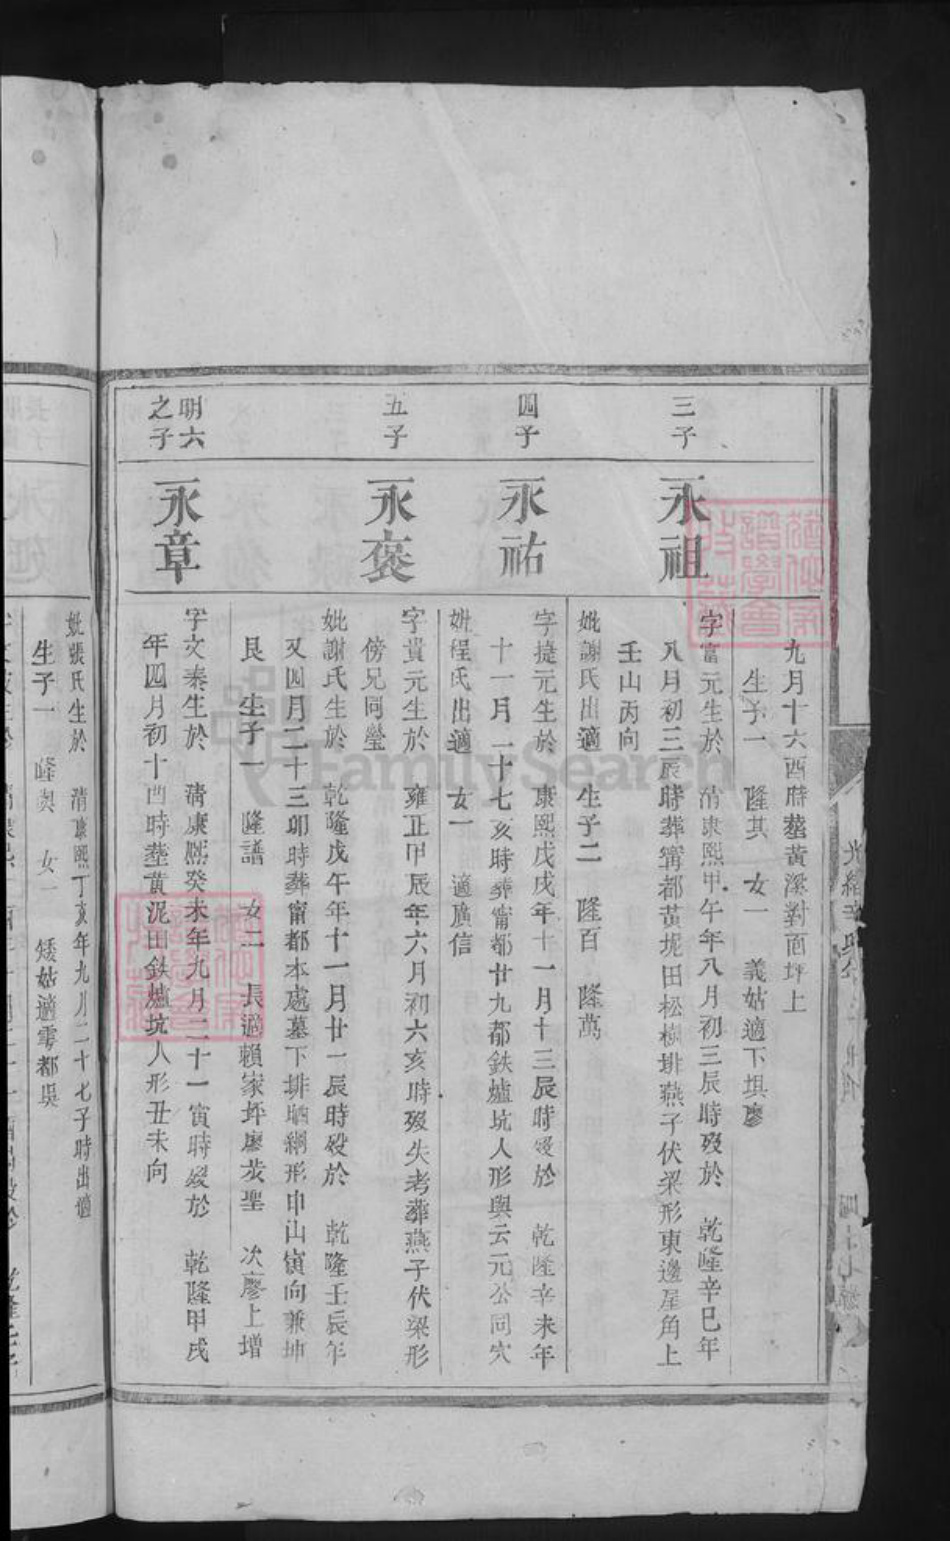 九月十六酉時塟黃溪對面坪上
生子一 隆其 女一 義姑適下垻廖
三子
永祖
字富元生於 清康熙甲午年八月初三辰時歿於 乾隆辛巳年
八月初三辰時葬甯都黃坭田松樹排燕子伏梁形東邊屋角上
壬山丙向
妣謝氏出適 生子二 隆百 隆萬
四子
永祐
字捷元生於 康熙戊戌年十一月十三辰時歿於 乾隆辛未年
十一月二十七亥時葬甯都廿九都鉄爐坑人形與云元公同穴
妣程氏出適 女一 適廣信
五子
永褒
字貴元生於 雍正甲辰年六月初六亥時歿失考葬燕子伏梁形
傍兄同塋
妣謝氏生於 乾隆戊午年十一月廿一辰時歿於 乾隆壬辰年
又四月二十三卯時葬甯都本處墓下排晒網形申山寅向兼坤
艮 生子一 隆譜 女二 長適賴家坪廖茂聖 次廖上增
明六之子
永章
字文泰生於 清康熙癸未年九月二十一寅時歿於 乾隆甲戌
年四月初十酉時塟黃泥山鉄爐坑人形丑未向
妣張氏生於 清康熙丁亥年九月二十七子時出適
生子一 隆契 女一 矮姑適雩都吳
FamilySearch